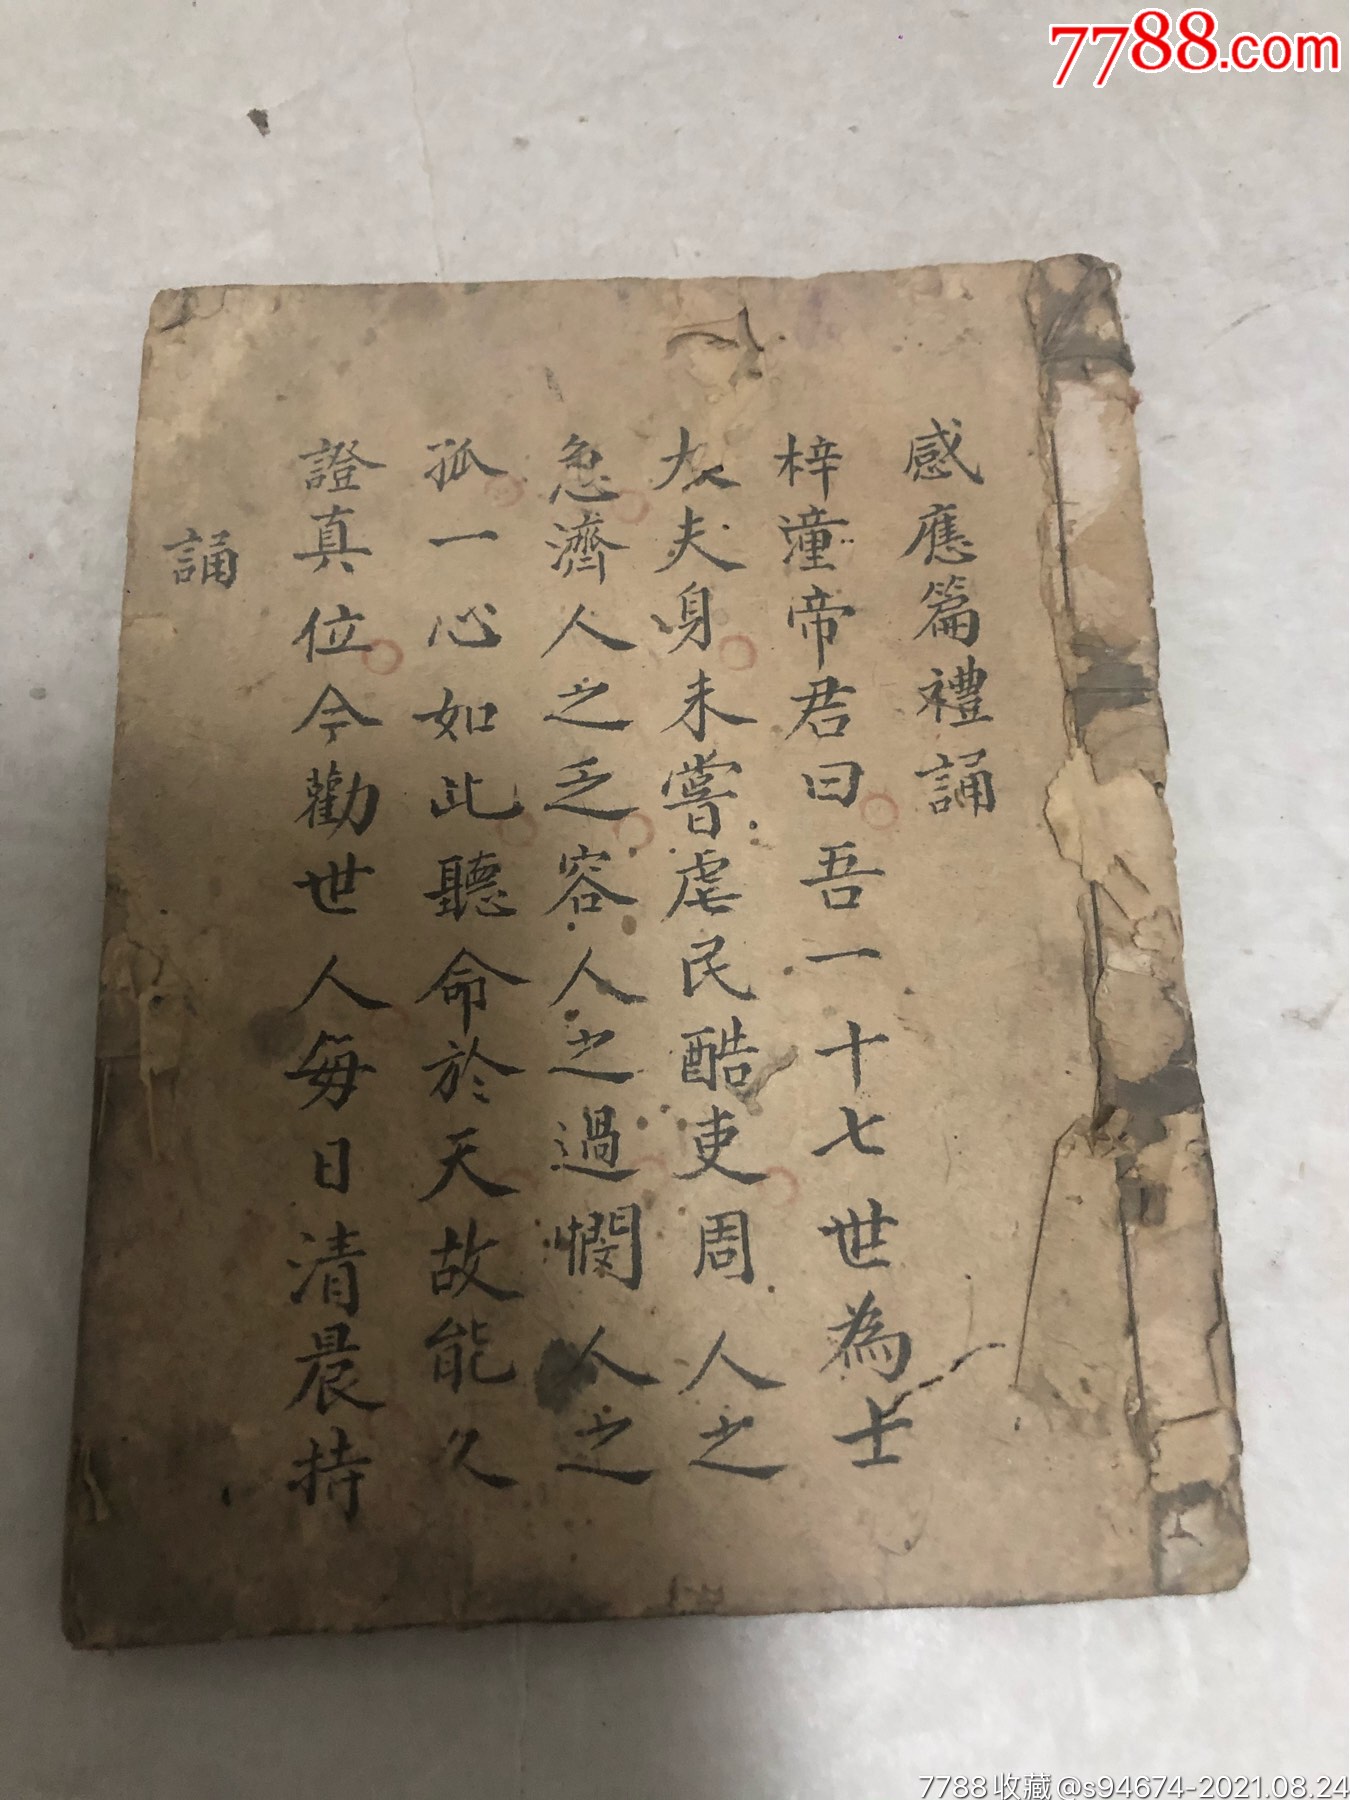 7788.com
感應篇禮誦
梓潼帝君曰吾一十七世為士
大夫身未嘗虐民酷吏周人之
急濟人之乏容人之過憫人之
孤一心如此聽命於天故能久
證真位今勸世人每日清晨持
誦
7788收藏@s94674-2021.08.24